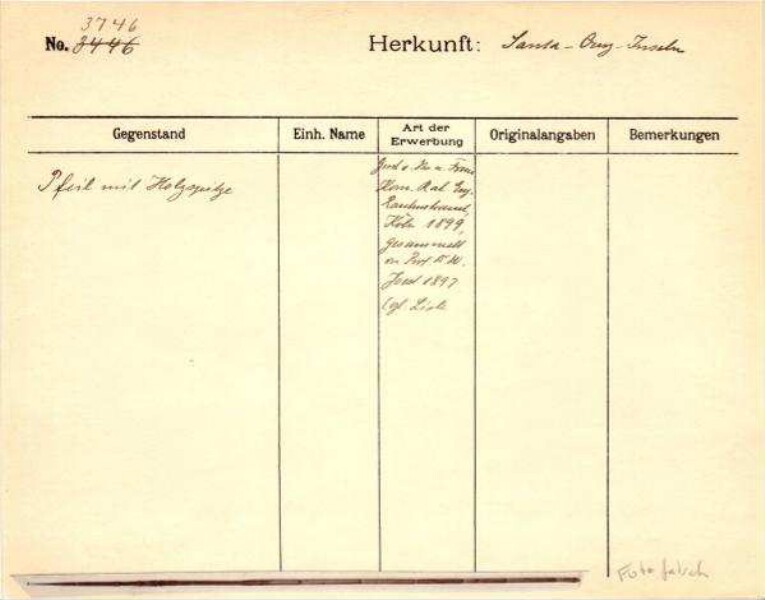 3746
No. 3446 Herkunft: Santa-Cruz-Inseln
Gegenstand Einh. Name Art der Erwerbung Originalangaben Bemerkungen
Pfeil mit Holzspitze
Kom. Rat Eug.
Köln 1899,
gesammelt
Prof. Dr. W.
1897
Cf. Liste
Foto falsch